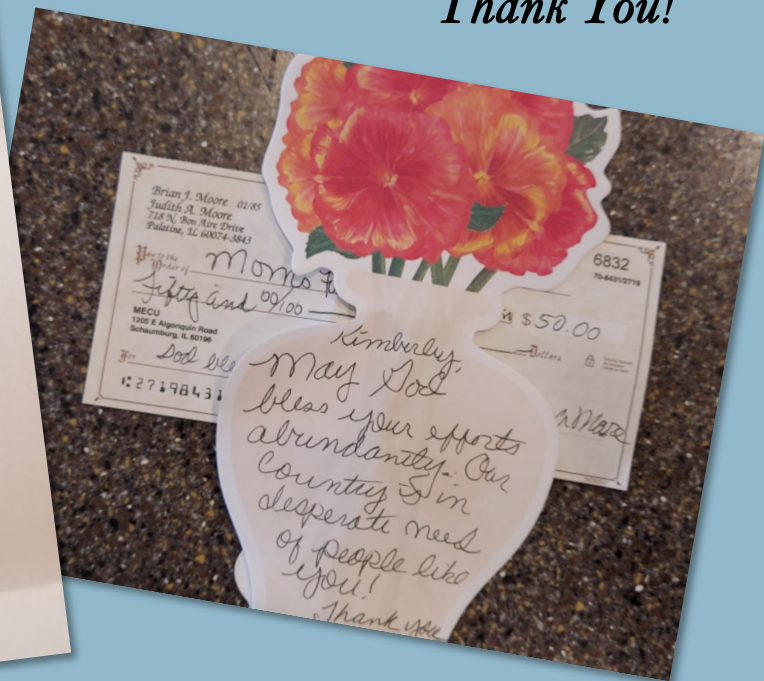 Thank You!
Brian J. Moore 01/85
Judith A. Moore
718 N. Bon Aire Drive
Palatine, IL 60074-3843
Pay to the
Order of Moms
Fifty and 00/100
MECU
1205 E Algonquin Road
Schaumburg, IL 60196
For God ble
6832
70-8431/2719
$ 50.00
Dollars
Moore
Kimberly,
May God
bless your efforts
abundantly. Our
country is in
desperate need
of people like
you!
Thank you